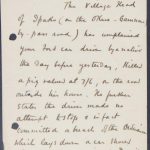 The Village Head
of Ipake (on the Okene-
by-pass road) has complained
your Ford car driven by a native
the day before yesterday, killed
a pig valued at 3/6, on the road
outside his house. He further
states the driver made no
attempt to stop & in fact
committed a breach of the Ordinance
which lays down a car should